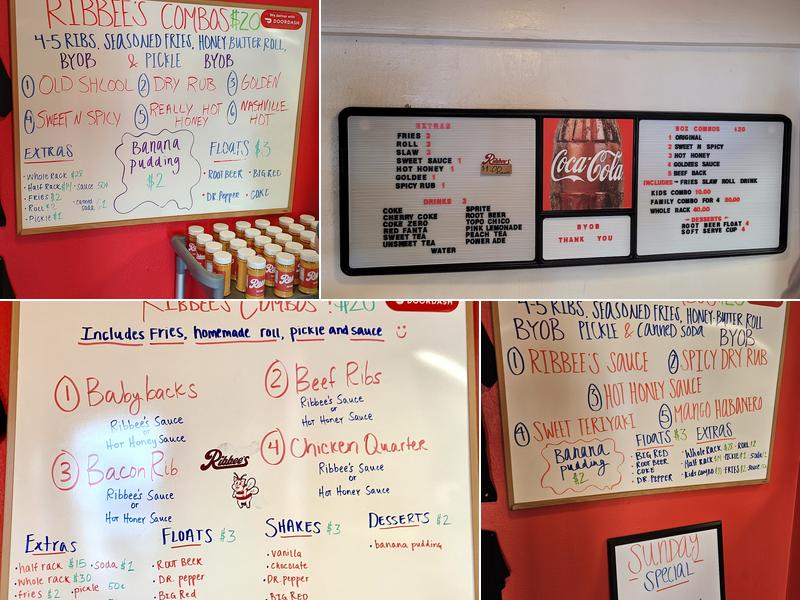 RIBBEE'S COMBOS $20
We deliver with
DOORDASH
4-5 RIBS, SEASONED FRIES, HONEY BUTTER ROLL,
BYOB & PICKLE BYOB
1 OLD SHCOOL 2 DRY RUB 3 GOLDEN
4 SWEET N SPICY 5 REALLY HOT HONEY 6 NASHVILLE HOT
EXTRAS
• Whole Rack $28
• Half Rack $14 • Sauce 50¢
• FRIES $2 • canned soda $1
• Roll $2
• Pickle $1
Banana
pudding
$2
FLOATS $3
• ROOT BEER • BIG RED
• Dr. Pepper • COKE
EXTRAS
FRIES 3
ROLL 2
SLAW 3
SWEET SAUCE 1
HOT HONEY 1
GOLDEE 1
SPICY RUB 1
Ribbee's
DRINKS 3
COKE
CHERRY COKE
COKE ZERO
RED FANTA
SWEET TEA
UNSWEET TEA
SPRITE
ROOT BEER
TOPO CHICO
PINK LEMONADE
PEACH TEA
POWER ADE
WATER
Coca-Cola
BYOB
THANK YOU
BOX COMBOS $20
1 ORIGINAL
2 SWEET N SPICY
3 HOT HONEY
4 GOLDEES SAUCE
5 BEEF BACK
INCLUDES - FRIES SLAW ROLL DRINK
KIDS COMBO 10.00
FAMILY COMBO FOR 4 80.00
WHOLE RACK 40.00
- DESSERTS -
ROOT BEER FLOAT 4
SOFT SERVE CUP 4
RIBBEES COMBOS! $20
DOORDASH
Includes Fries, homemade roll, pickle and sauce
1 Babybacks
Ribbee's Sauce
or
Hot Honey Sauce
2 Beef Ribs
Ribbee's Sauce
or
Hot Honey Sauce
3 Bacon Rib
Ribbee's Sauce
or
Hot Honey Sauce
Ribbee's
4 Chicken Quarter
Ribbee's Sauce
or
Hot Honey Sauce
Extras
• half rack $15 • soda $1
• whole rack $30
• fries $2 • pickle 50¢
FLOATS $3
• ROOT BEER
• DR. pepper
• BIG RED
SHAKES $3
• vanilla
• chocolate
• DR. pepper
• BIG RED
DESSERTS $2
• banana pudding
4-5 RIBS, SEASONED FRIES, HONEY-BUTTER ROLL
BYOB PICKLE & canned soda BYOB
1 RIBBEE'S SAUCE 2 SPICY DRY RUB
3 HOT HONEY SAUCE
4 SWEET TERIYAKI 5 MANGO HABANERO
Banana
pudding
$2
FLOATS $3
• BIG RED
• ROOT BEER
• COKE
• DR. PEPPER
EXTRAS
• Whole Rack $28 • ROLL $2
• Half Rack $14 PICKLE $1 • soda
• Kids combo FRIES $2 Sauce
SUNDAY
SPECIAL